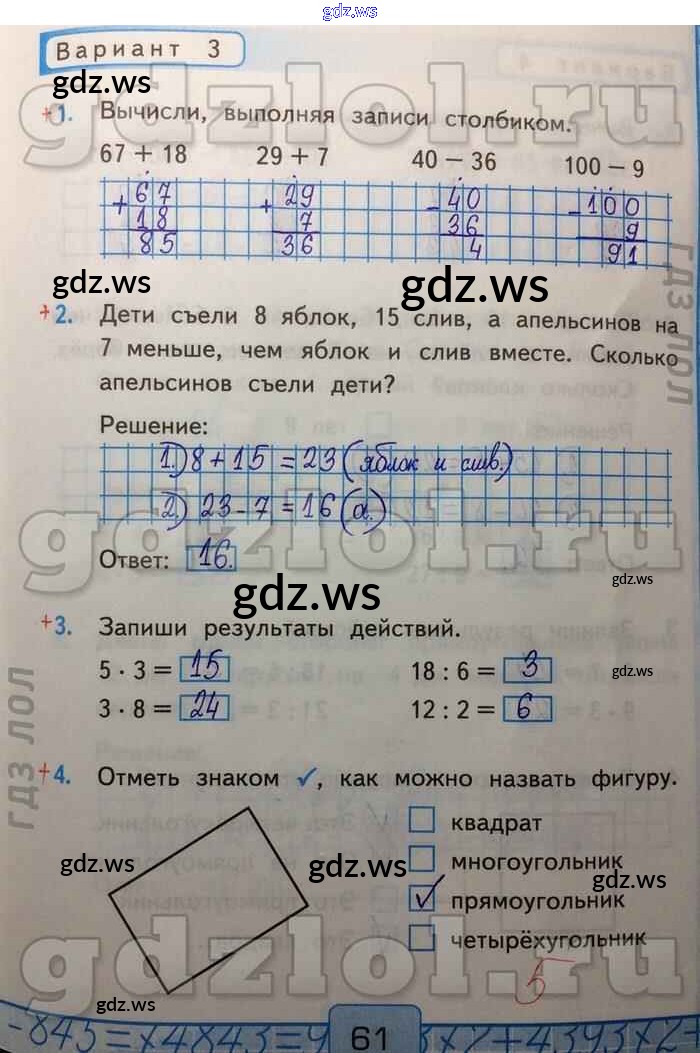 gdz.ws
Вариант 3
gdz.ws
gdzlol.ru
+1. Вычисли, выполняя записи столбиком.
67 + 18 29 + 7 40 − 36 100 − 9
+ 67 + 29 − 40 − 100
18 7 36 9
85 36 4 91
gdz.ws
gdz.ws
гдз лол
+2. Дети съели 8 яблок, 15 слив, а апельсинов на
7 меньше, чем яблок и слив вместе. Сколько
апельсинов съели дети?
Решение:
1.) 8 + 15 = 23 (яблок и слив.)
2.) 23 - 7 = 16 (а.)
gdzlol.ru
Ответ: 16.
gdz.ws
gdz.ws
+3. Запиши результаты действий.
5 · 3 = 15 18 : 6 = 3
gdz.ws
3 · 8 = 24 12 : 2 = 6
гдз лол
+4. Отметь знаком ✓, как можно назвать фигуру.
квадрат
многоугольник
gdz.ws
gdz.ws
gdz.ws
✓ прямоугольник
четырёхугольник
gdzlol.ru
5
gdz.ws
61